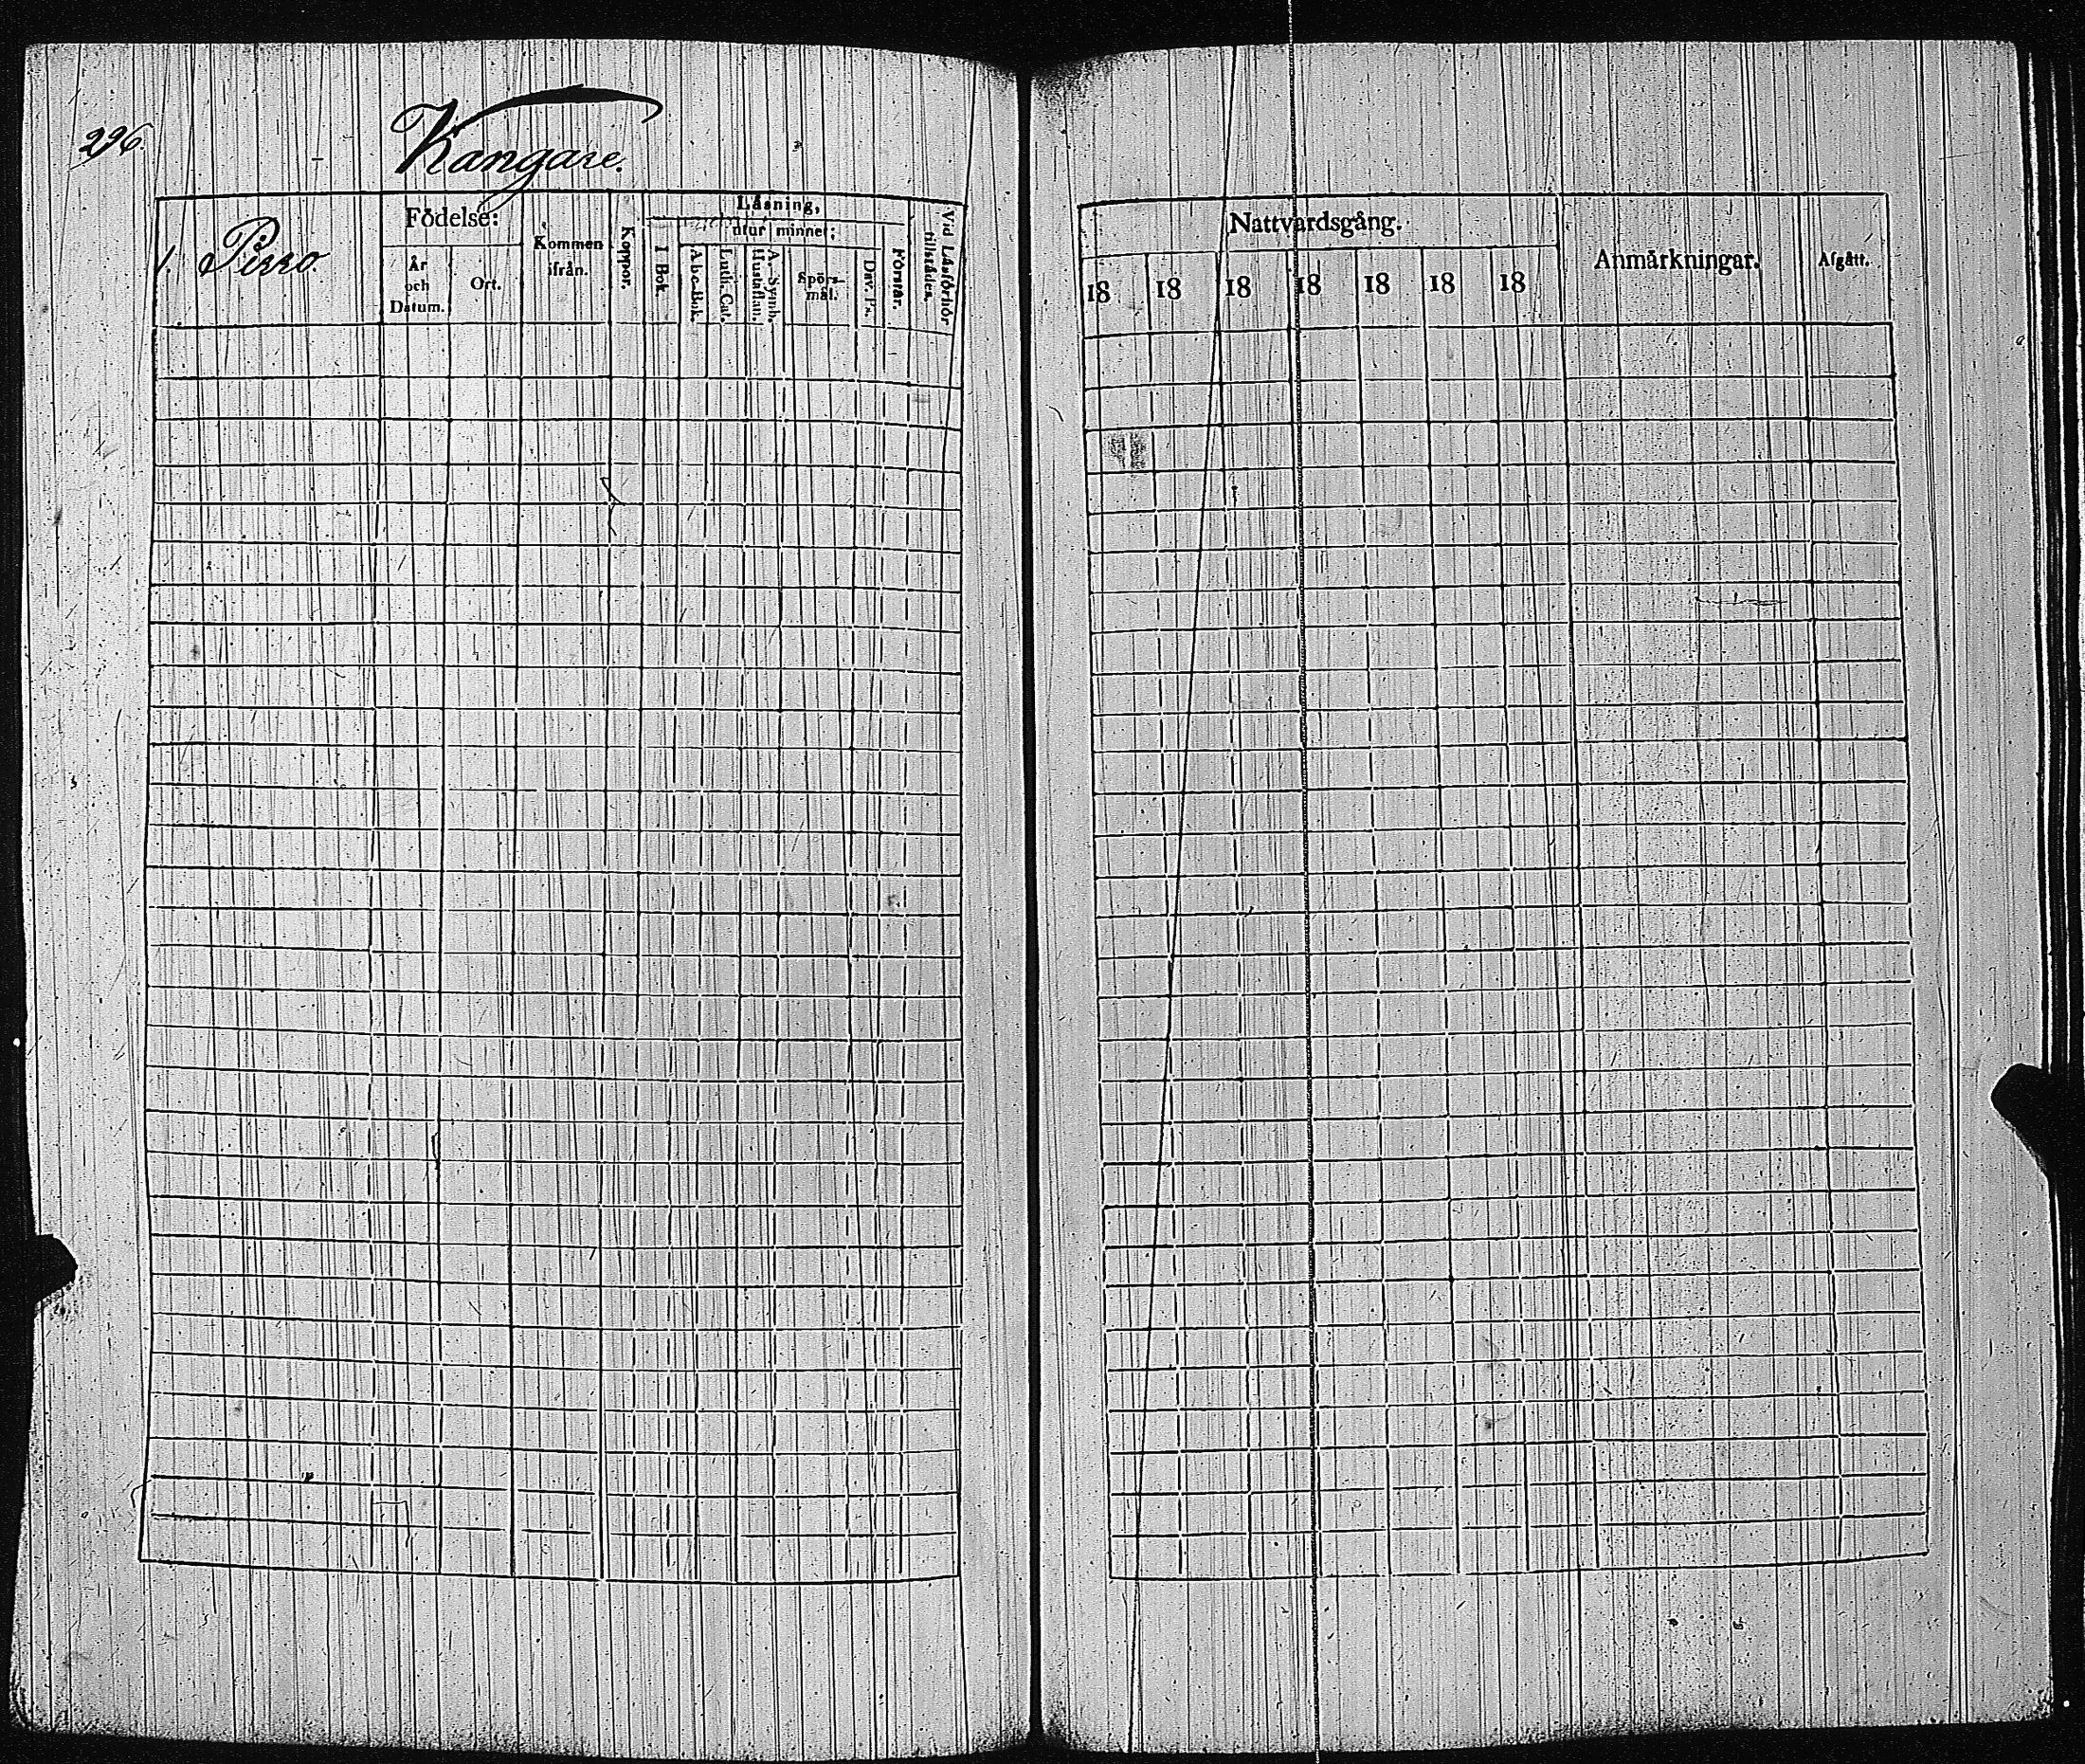 296.
Kangare.
1. Pirro.
Födelse:
År
och
Datum.
Ort.
Kommen
ifrån.
Koppor.
Läsning,
utur minnet;
I Bok.
Abc-Bok.
Luth. Cat.
A. Symb.
Hustaflan.
Spörs-
mål.
Dav. Ps.
Förstår.
Vid Läsförhör
tillstädes.
Nattvardsgång.
18 18 18 18 18 18 18
Anmärkningar.
Afgått.